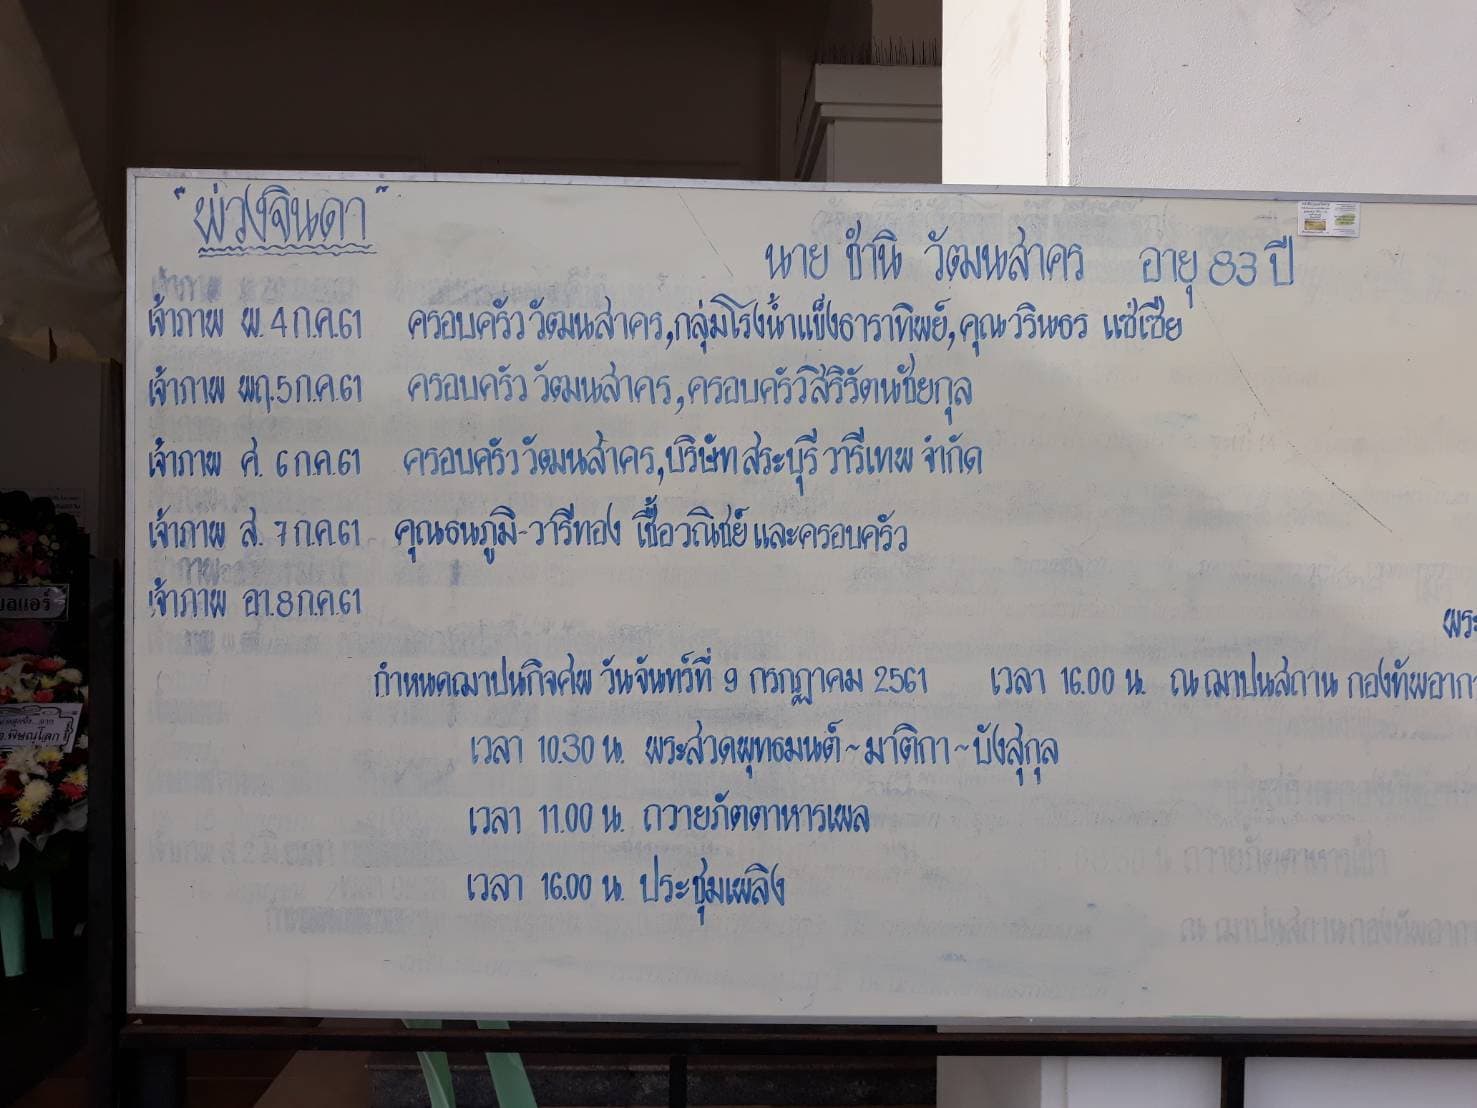 "พ่วงจินดา"
นาย ชำนิ วัฒนสาคร อายุ 83 ปี
เจ้าภาพ พ. 4 ก.ค.61 ครอบครัว วัฒนสาคร,กลุ่มโรงน้ำแข็งธาราทิพย์,คุณวรินธร แซ่เซีย
เจ้าภาพ พฤ.5 ก.ค.61 ครอบครัว วัฒนสาคร,ครอบครัวสิริรัตนชัยกุล
เจ้าภาพ ศ. 6 ก.ค.61 ครอบครัว วัฒนสาคร,บริษัท สระบุรี วารีเทพ จำกัด
เจ้าภาพ ส. 7 ก.ค.61 คุณธนภูมิ-วารีทอง เชื้อวณิชย์ และครอบครัว
เจ้าภาพ อา.8 ก.ค.61
พระ
กำหนดฌาปนกิจศพ วันจันทร์ที่ 9 กรกฎาคม 2561 เวลา 16.00 น. ณ ฌาปนสถาน กองทัพอากา
เวลา 10.30 น. พระสวดพุทธมนต์~มาติกา~บังสุกุล
เวลา 11.00 น. ถวายภัตตาหารเพล
เวลา 16.00 น. ประชุมเพลิง
ณ ฌาปนสถานกองทัพอากา
บลแอร์
จ.พิษณุโลก